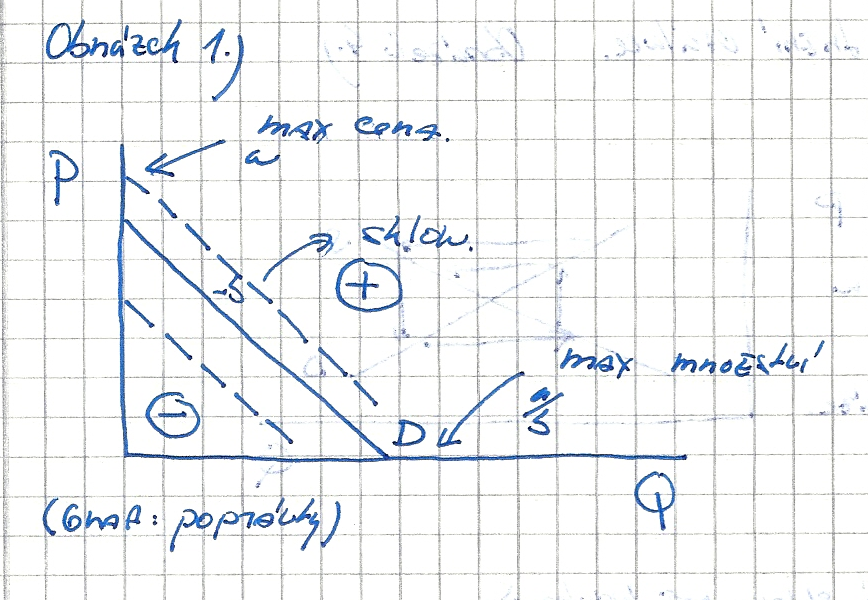 Obrázek 1.)
max cena.
a
P
sklon.
-b
+
max množství
a/b
-
D
Q
(Graf: poptávky)